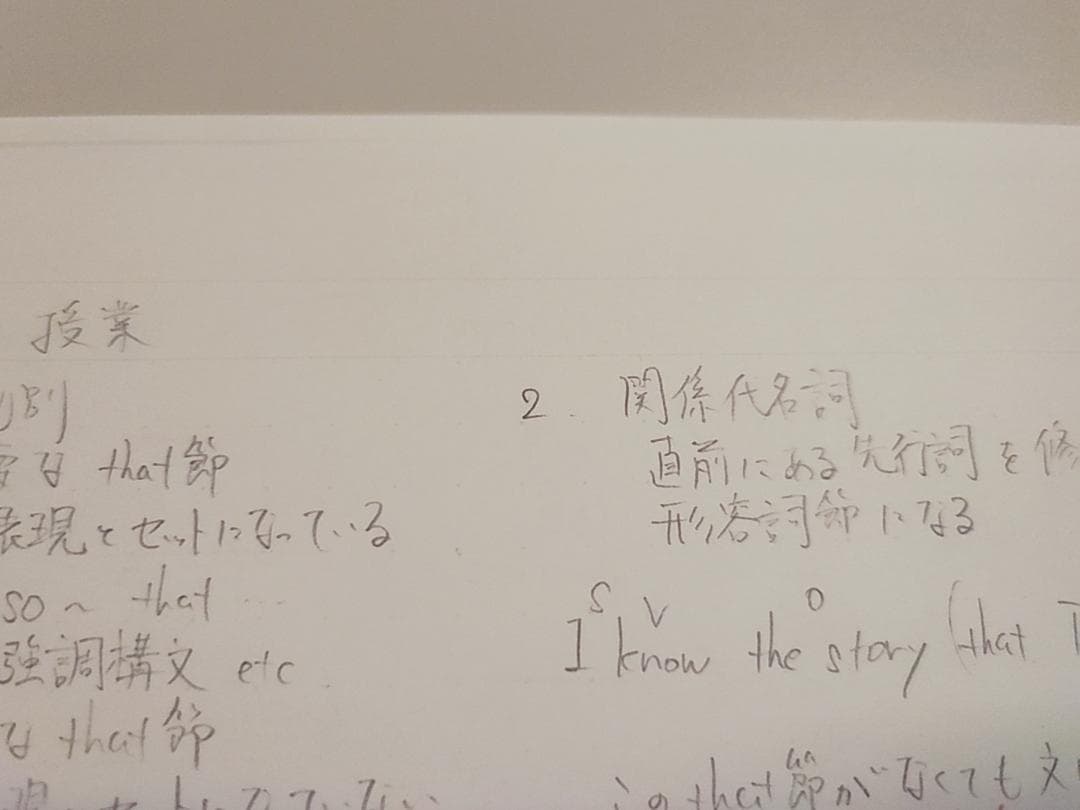 授業
別
な that節
表現とセットになっている
so ~ that …
強調構文 etc.
な that節
2. 関係代名詞
直前にある先行詞を修
形容詞節になる
S V O
I know the story (that
この that節がなくても文